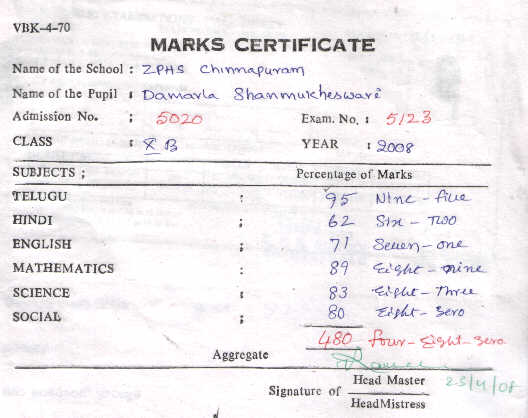 VBK-4-70
MARKS CERTIFICATE
Name of the School : ZPHS Chinnapuram
Name of the Pupil : Damarla Shanmukheswari
Admission No. : 5020 Exam. No. : 5/23
CLASS : X B YEAR : 2008
SUBJECTS ; Percentage of Marks
TELUGU : 95 Nine - five
HINDI ; 62 Six - Two
ENGLISH ; 71 Seven - one
MATHEMATICS : 89 Eight - nine
SCIENCE : 83 Eight - Three
SOCIAL ; 80 Eight - Zero
480 four - Eight - Zero
Aggregate
Signature of Head Master 25/4/08
HeadMistress